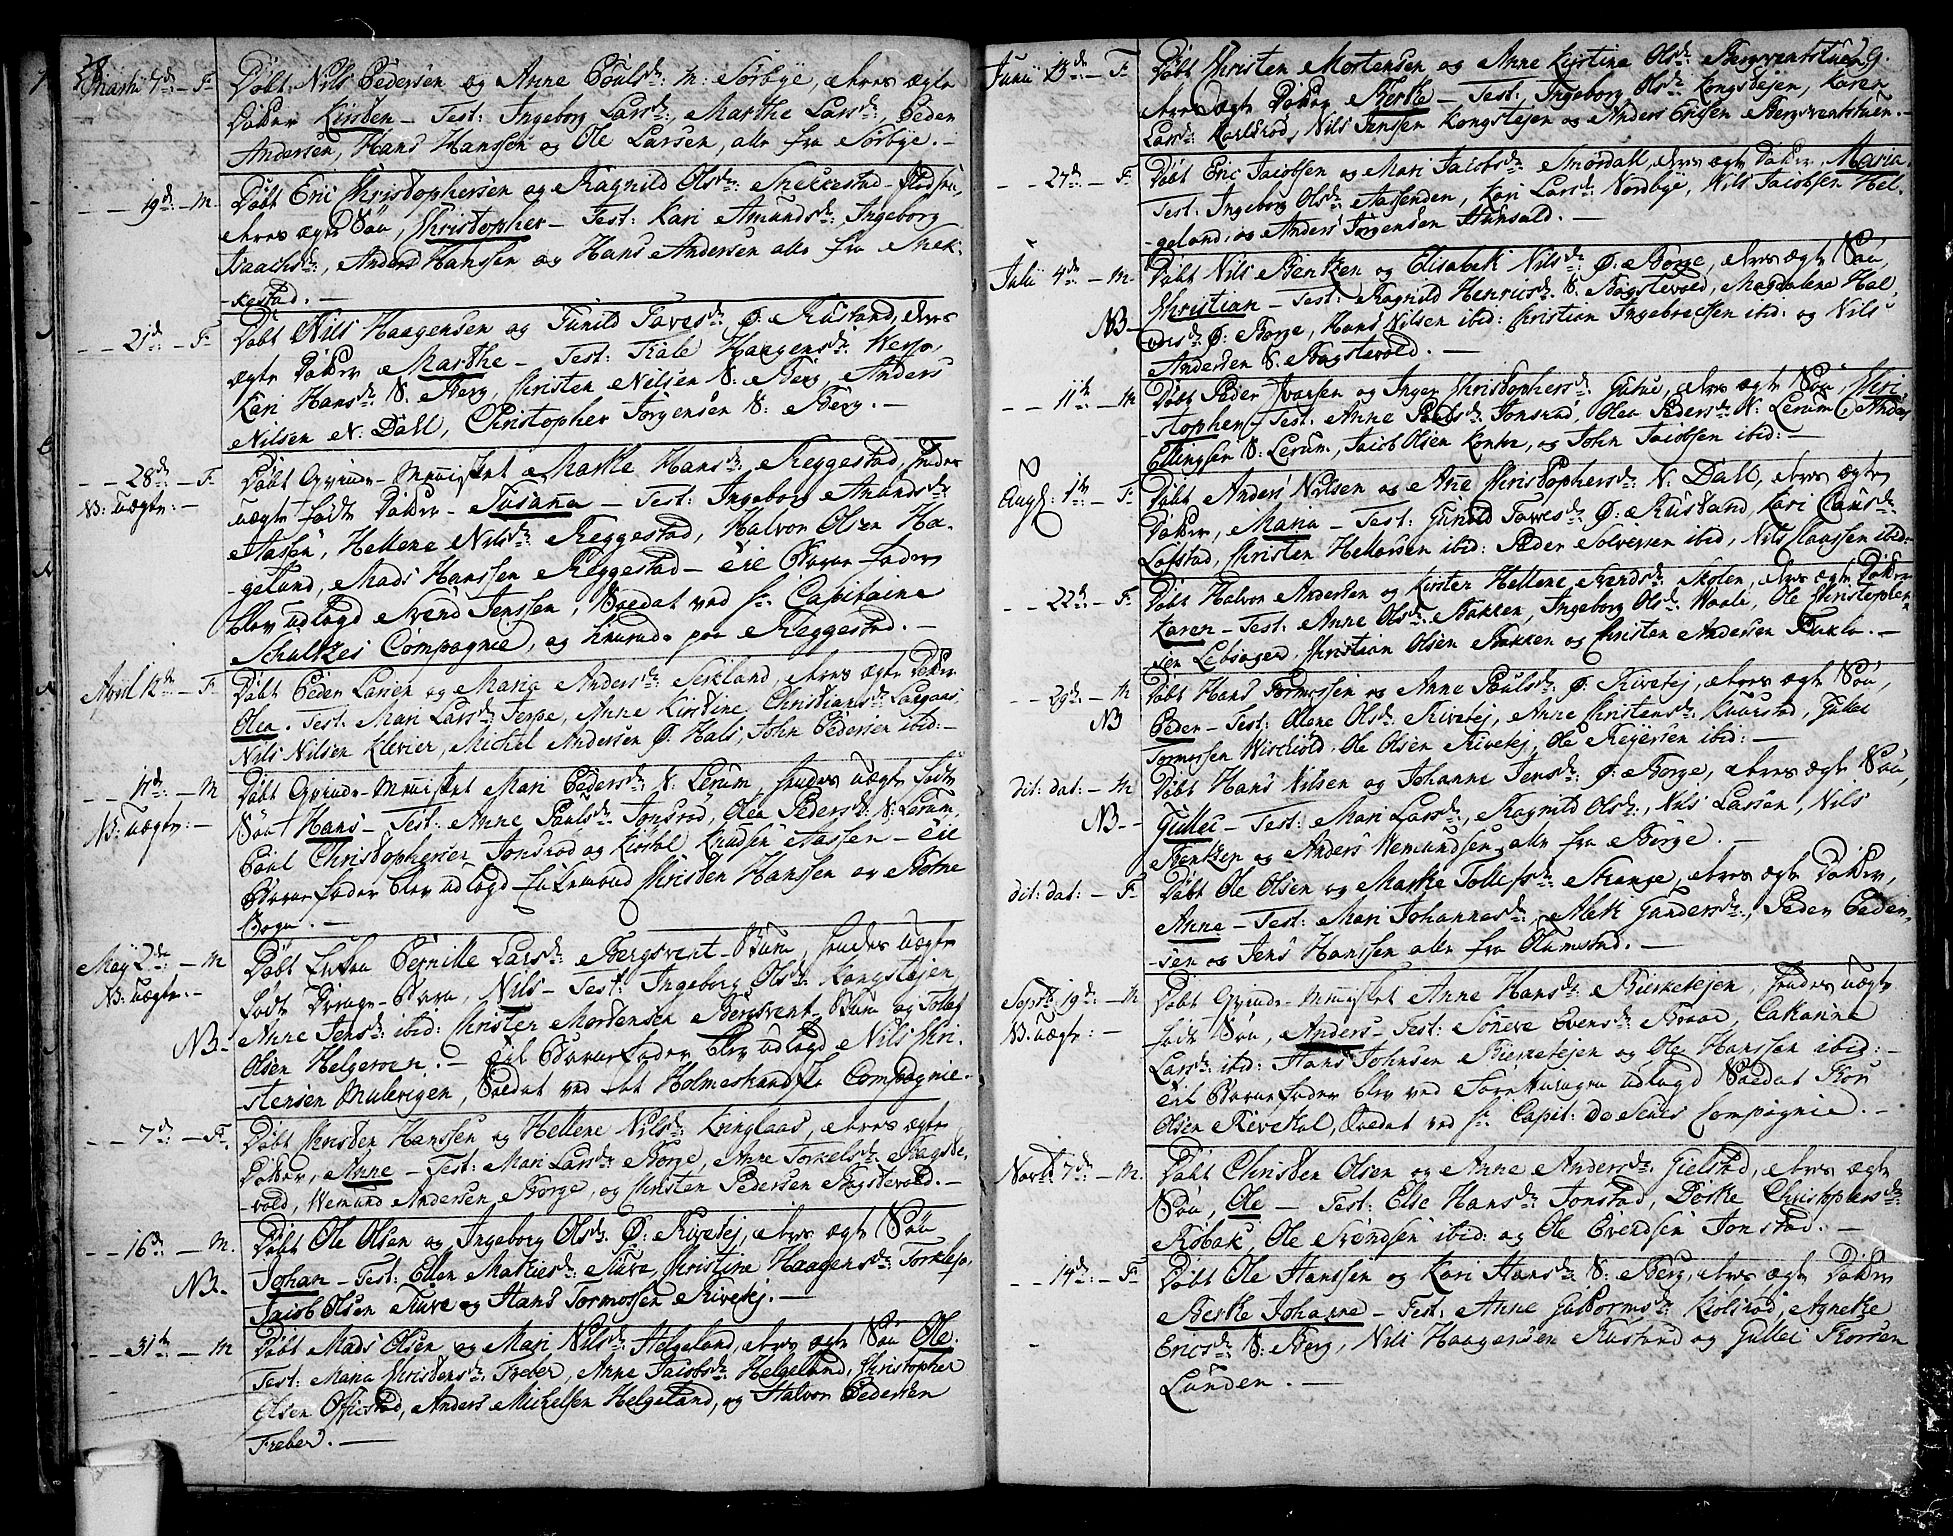 28
Martii 7de – F. Döbt Nils Pedersen og Anne Pouls dr: M: Sörbye, deres ægte
Datter Kirsten – Test: Ingeborg Lars dr:, Marthe Lars dr:, Peder
Andersen, Hans Hanssen og Ole Larsen, alle fra Sörbye. –
– – 19de – M. Döbt Eric Christophersen og Ragnild Ols dr: Sneckestad
deres ægte Sön, Christopher – Test: Kari Amunds dr:, Ingeborg
Isaachs dr:, Anders Hanssen og Hans Andersen alle fra Snek-
-kestad. –
– – 21de – F Döbt Nils Haagensen og Gunild Taves dr: Ø: Rustand, deres
ægte Datter Marthe – Test: Kale Haagens dr: Kersjo,
Kari Hans dr: S: Berg, Christen Nilsen S: Berg, Anders
Nilsen N: Dall, Christopher Jörgensen S: Berg. –
– – 28de – F Döbt Qvinde-Mennisket Marthe Hans dr: Reggestad, hendes
N3: uægte: – uægte födte Datter – Susana – Test: Ingeborg Amunds dr:
Aasen, Hellene Nils dr: Reggestad, Halvor Olsen Ha-
-geland, Mads Hanssen Reggestad – til Barne Fader
blev udlagd Svend Jenssen, Soldat ved Hr: Capitaine
Schultzes Compagnie, og hörende paa Reggestad. –
April 12te – F Döbt Peder Larsen og Maria Anders dr: Serkland, deres ægte Datter
Olea. Test: Mari Lars dr: Jerpe, Anne Kirstine Christians dr: Langaas,
Nils Nilsen Klevier, Michel Andersen Ø: Hals, John Pedersen ibid: –
– – 17de – M Döbt Qvinde-Mennisket Mari Peders dr: N: Lerum, hendes uægte födte
N3: uægte: – Sön Hans – Test: Anne Pauls dr: Jonsröd, Olea Peders dr: N: Lerum,
Poul Christophersen Jonsröd og Kiöstol Knudsen Aassen – til
Barne Fader blev udlagd Christen Hanssen av Botne
Sogn. –
May 2de – M Döbt Enken Pernille Lars dr: Bergsvent-Stuen, hendes uægte
N3: uægte: – födte Drenge-Barn, Nils – Test: Ingeborg Ols dr: Kongstejen,
N3 – Anne Jens dr: ibid: Christen Mortensen Bergsvent-Stuen og Tollef
Olsen Helgeroen. – til Barne Fader blev udlagd Nils Chri-
stensen Mulevigen, Soldat ved det Holmestrandske Compagnie.
– – 7de: – F. Döbt Christen Hanssen og Hellene Nils dr: Kinglaas, deres ægte
Datter, Anne – Test: Mari Lars dr: Borge, Anne Torkels dr: Bagste-
vold, Wemund Andersen Borge, og Christen Pedersen Bagstevold. –
– – 16de – M. Döbt Ole Olsen og Ingeborg Ols dr: Ø: Rivetej, deres ægte Sön
N3. Johan – Test: Ellen Mathies dr: Tuve, Christine Haagens dr:
Jacob Olsen Tuve og Hans Tormossen Rivetej. –
– – 31te – M Döbt Mads Olsen og Mari Nils dr: Helgeland, deres ægte Sön Ole.
Test: Maria Christens dr: Freber, Anne Jacobs dr: Helgeland, Christopher
Olsen Offigstad, Anders Michelsen Helgeland, og Halvor Pedersen
Freber. –
Junii 13de – F Döbt Christen Mortensen og Anne Kirstine Ols dr: Bergsventstuen
deres ægte Datter Berthe – Test: Ingeborg Ols dr: Kongstejen, Karen
Lars dr: Karlsröd, Nils Jenssen Kongstejen og Anders Ericsen Bergsventstuen. –
– – 24de – F Döbt Eric Jacobsen og Mari Jacobs dr: Snördall, deres ægte Datter, Maria.
Test: Ingeborg Ols dr: Aassenden, Kari Lars dr: Nordbye, Nils Jacobsen Hel-
-geland, og Anders Jörgensen Hunsald. –
Julii 4de – M: Döbt Nils Bentzen og Elisabeth Nils dr: Ø: Borge, deres ægte Sön,
N3 – Christian – Test: Ragnild Henrics dr: S: Bagstevold, Magdalene Hal-
vors dr: Ø: Borge, Hans Nilsen ibid: Christian Ingebretsen ibid: og Nils
Andersen S: Bagstevold. –
– – 11te – M Döbt Peder Ivarsen og Inger Christophers dr: Gusue, deres ægte Sön, Chri-
-stopher – Test: Anne Pouls dr: Jonsröd, Olea Peders dr: N: Lerum, Anders
Ellingsen S: Lerum, Jacob Olsen Konke, og John Jacobsen ibid: –
Augl: 1te – F Döbt Anders Nilsen og Ane Christophers dr: N: Dall, deres ægte
Datter, Maria – Test: Gunild Taves dr: Ø: Rustand, Kari Claus dr:
Lofstad, Christen Hellorsen ibid: Peder Solversen ibid, Nils Claassen ibid: –
– – 22de – F. Döbt Halvor Andersen og Kirsten Hellene Svends dr: Skolen, deres ægte Datter
Karen – Test: Anne Ols dr: Bakken, Ingeborg Ols dr: Waale, Ole Christopher-
sen Lebsager, Christian Olsen Bakken og Christen Andersen –
– – 29de – M Döbt Hans Tormossen og Anne Pauls dr: Ø: Rivetej, deres ægte Sön,
N3 Peder – Test: Olene Ols dr: Rivetej, Anne Christens dr: Knarstad, Gullei
Tormossen Wirchöld, Ole Olsen Rivetej, Ole Rejersen ibid: –
dit: dat: – M Döbt Hans Nilsen og Johanne Jens dr: Ø: Borge, deres ægte Sön,
N3 – Gullei – Test: Mari Lars dr:, Ragnild Ols dr:, Nils Larsen, Nils
Bentzen og Anders Wemundsen, alle fra Borge. –
dit: dat: – F Döbt Ole Olsen og Marthe Tollefs dr: Strange, deres ægte Datter,
Anne – Test: Mari Johannes dr:, Aleth Gunders dr:, Peder Peder-
-sen og Jens Hanssen alle fra Olumstad. –
Septb: 19de – M. Döbt Qvinde-Mennisket Anne Hans dr: Birketejen, hendes uægte
N3: uægte: – födte Sön, Anders – Test: Sönneve Evens dr: Braae, Catharine
Lars dr: ibid: Hans Johnsen Birketejen og Ole Hanssen ibid: –
til Barne Fader blev ved Forretningen udlagd Soldat Thor
Olsen Rivetal, Soldat ved Hr: Capit: de Seues Compagnie. –
Novb: 7de – M. Döbt Christen Olsen og Anne Anders dr: Gielstad, deres ægte
Sön, Ole – Test: Else Hans dr: Jonstad, Dorthe Christophers dr:
Robak, Ole Svendsen ibid: og Ole Evendsen Jonstad. –
– – 14de – F Döbt Ole Hanssen og Kari Hans dr: S: Berg, deres ægte Datter
Berthe Johanne – Test: Anne Guttorms dr: Kiölsröd, Agnethe
Erics dr: S: Berg, Nils Haagensen Rustand og Gullei Thorsen
Lunden. –